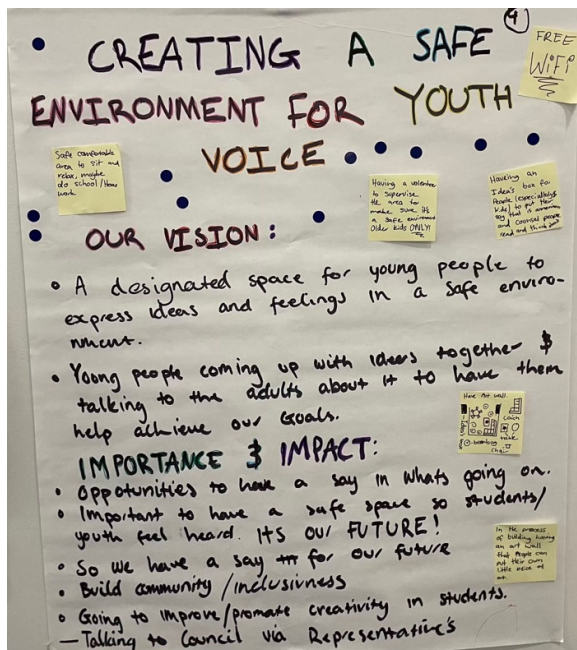 4
CREATING A SAFE
ENVIRONMENT FOR YOUTH
VOICE
FREE
WiFi
Safe comfortable
area to sit and
relax, maybe
do school/Home
work
Having a volenteer
to supervise
the area to
make sure its
a safe enviroment
Older kids ONLY!
Haveing an
Idea's box for
People (especially
kids) to put their
say that is
and counsel people
read and think
OUR VISION:
• A designated space for young people to
express ideas and feelings in a safe enviro-
nment.
• Young people coming up with ideas together $
talking to the adults about it to have them
help achieve our Goals.
Have Art wall.
couch
table
chair
IMPORTANCE $ IMPACT:
• Oppotunities to have a say in whats going on.
• Important to have a safe space so students/
youth feel heard. ITS OUR FUTURE!
• So we have a say for our future
• Build community /inclusivness
• Going to improve/promate creativity in students.
— Talking to Council via Representative's
In the process
of building having
an art wall
that People can
put their own
little piece of
art.